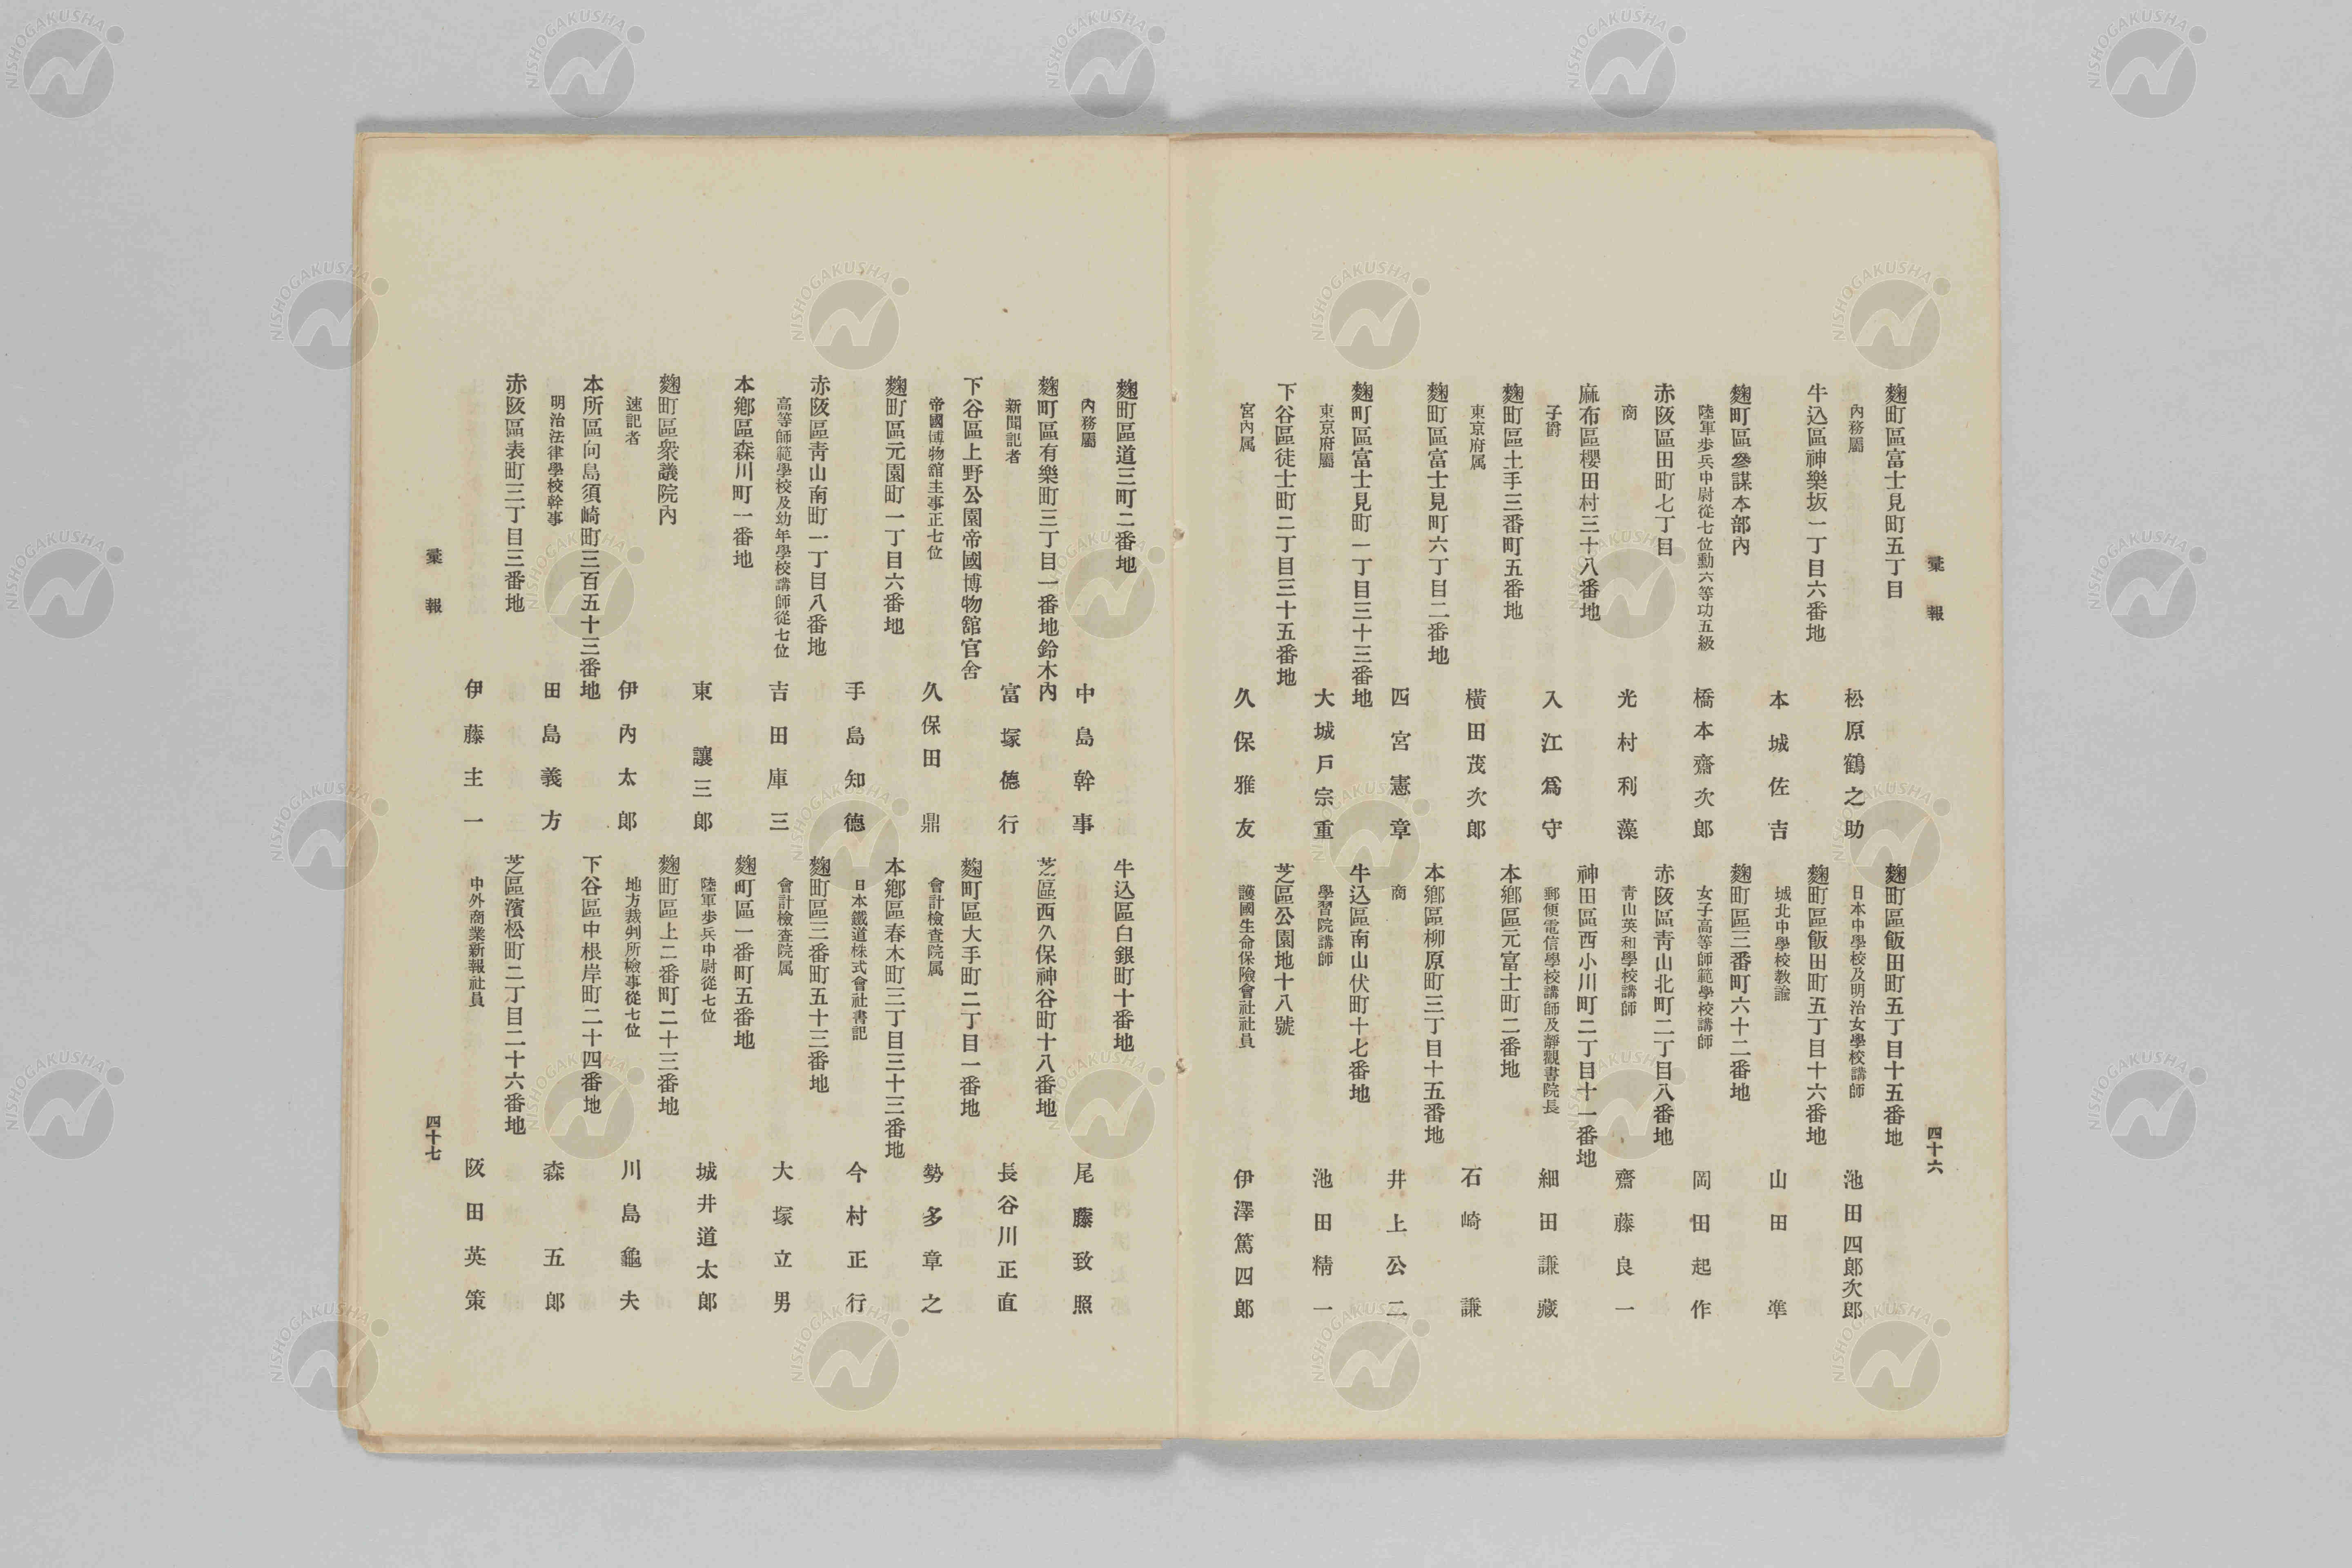 彙報
四十六
麴町區富士見町五丁目
內務屬
松原鶴之助
牛込區神樂坂一丁目六番地
本城佐吉
麴町區參謀本部內
陸軍歩兵中尉從七位勳六等功五級
橋本齋次郎
赤阪區田町七丁目
商
光村利藻
麻布區櫻田村三十八番地
子爵
入江爲守
麴町區土手三番町五番地
東京府属
橫田茂次郎
麴町區富士見町六丁目二番地
四宮憲章
麴町區富士見町一丁目三十三番地
東京府屬
大城戸宗重
下谷區徒士町二丁目三十五番地
宮內属
久保雅友
麴町區飯田町五丁目十五番地
日本中學校及明治女學校講師
池田四郎次郎
麴町區飯田町五丁目十六番地
城北中學校教諭
山田準
麴町區三番町六十二番地
女子高等師範學校講師
岡田起作
赤阪區靑山北町二丁目八番地
靑山英和學校講師
齋藤良一
神田區西小川町二丁目十一番地
郵便電信學校講師及靜觀書院長
細田謙藏
本鄕區元富士町二番地
石崎謙
本鄕區柳原町三丁目十五番地
商
井上公二
牛込區南山伏町十七番地
學習院講師
池田精一
芝區公園地十八號
護國生命保險會社社員
伊澤篤四郎
麴町區道三町二番地
內務屬
中島幹事
麴町區有樂町三丁目一番地鈴木內
新聞記者
富塚德行
下谷區上野公園帝國博物舘官舍
帝國博物舘主事正七位
久保田鼎
麴町區元園町一丁目六番地
手島知德
赤阪區靑山南町一丁目八番地
高等師範學校及幼年學校講師從七位
吉田庫三
本鄕區森川町一番地
東讓三郎
麴町區衆議院內
速記者
伊內太郎
本所區向島須崎町三百五十三番地
明治法律學校幹事
田島義方
赤阪區表町三丁目三番地
伊藤主一
牛込區白銀町十番地
尾藤致照
芝區西久保神谷町十八番地
長谷川正直
麴町區大手町二丁目一番地
會計檢査院属
勢多章之
本鄕區春木町三丁目三十三番地
日本鐵道株式會社書記
今村正行
麴町區三番町五十三番地
會計檢査院属
大塚立男
麴町區一番町五番地
陸軍歩兵中尉從七位
城井道太郎
麴町區上二番町二十三番地
地方裁判所檢事從七位
川島龜夫
下谷區中根岸町二十四番地
森五郎
芝區濱松町二丁目二十六番地
中外商業新報社員
阪田英策
彙報
四十七
NISHOGAKUSHA